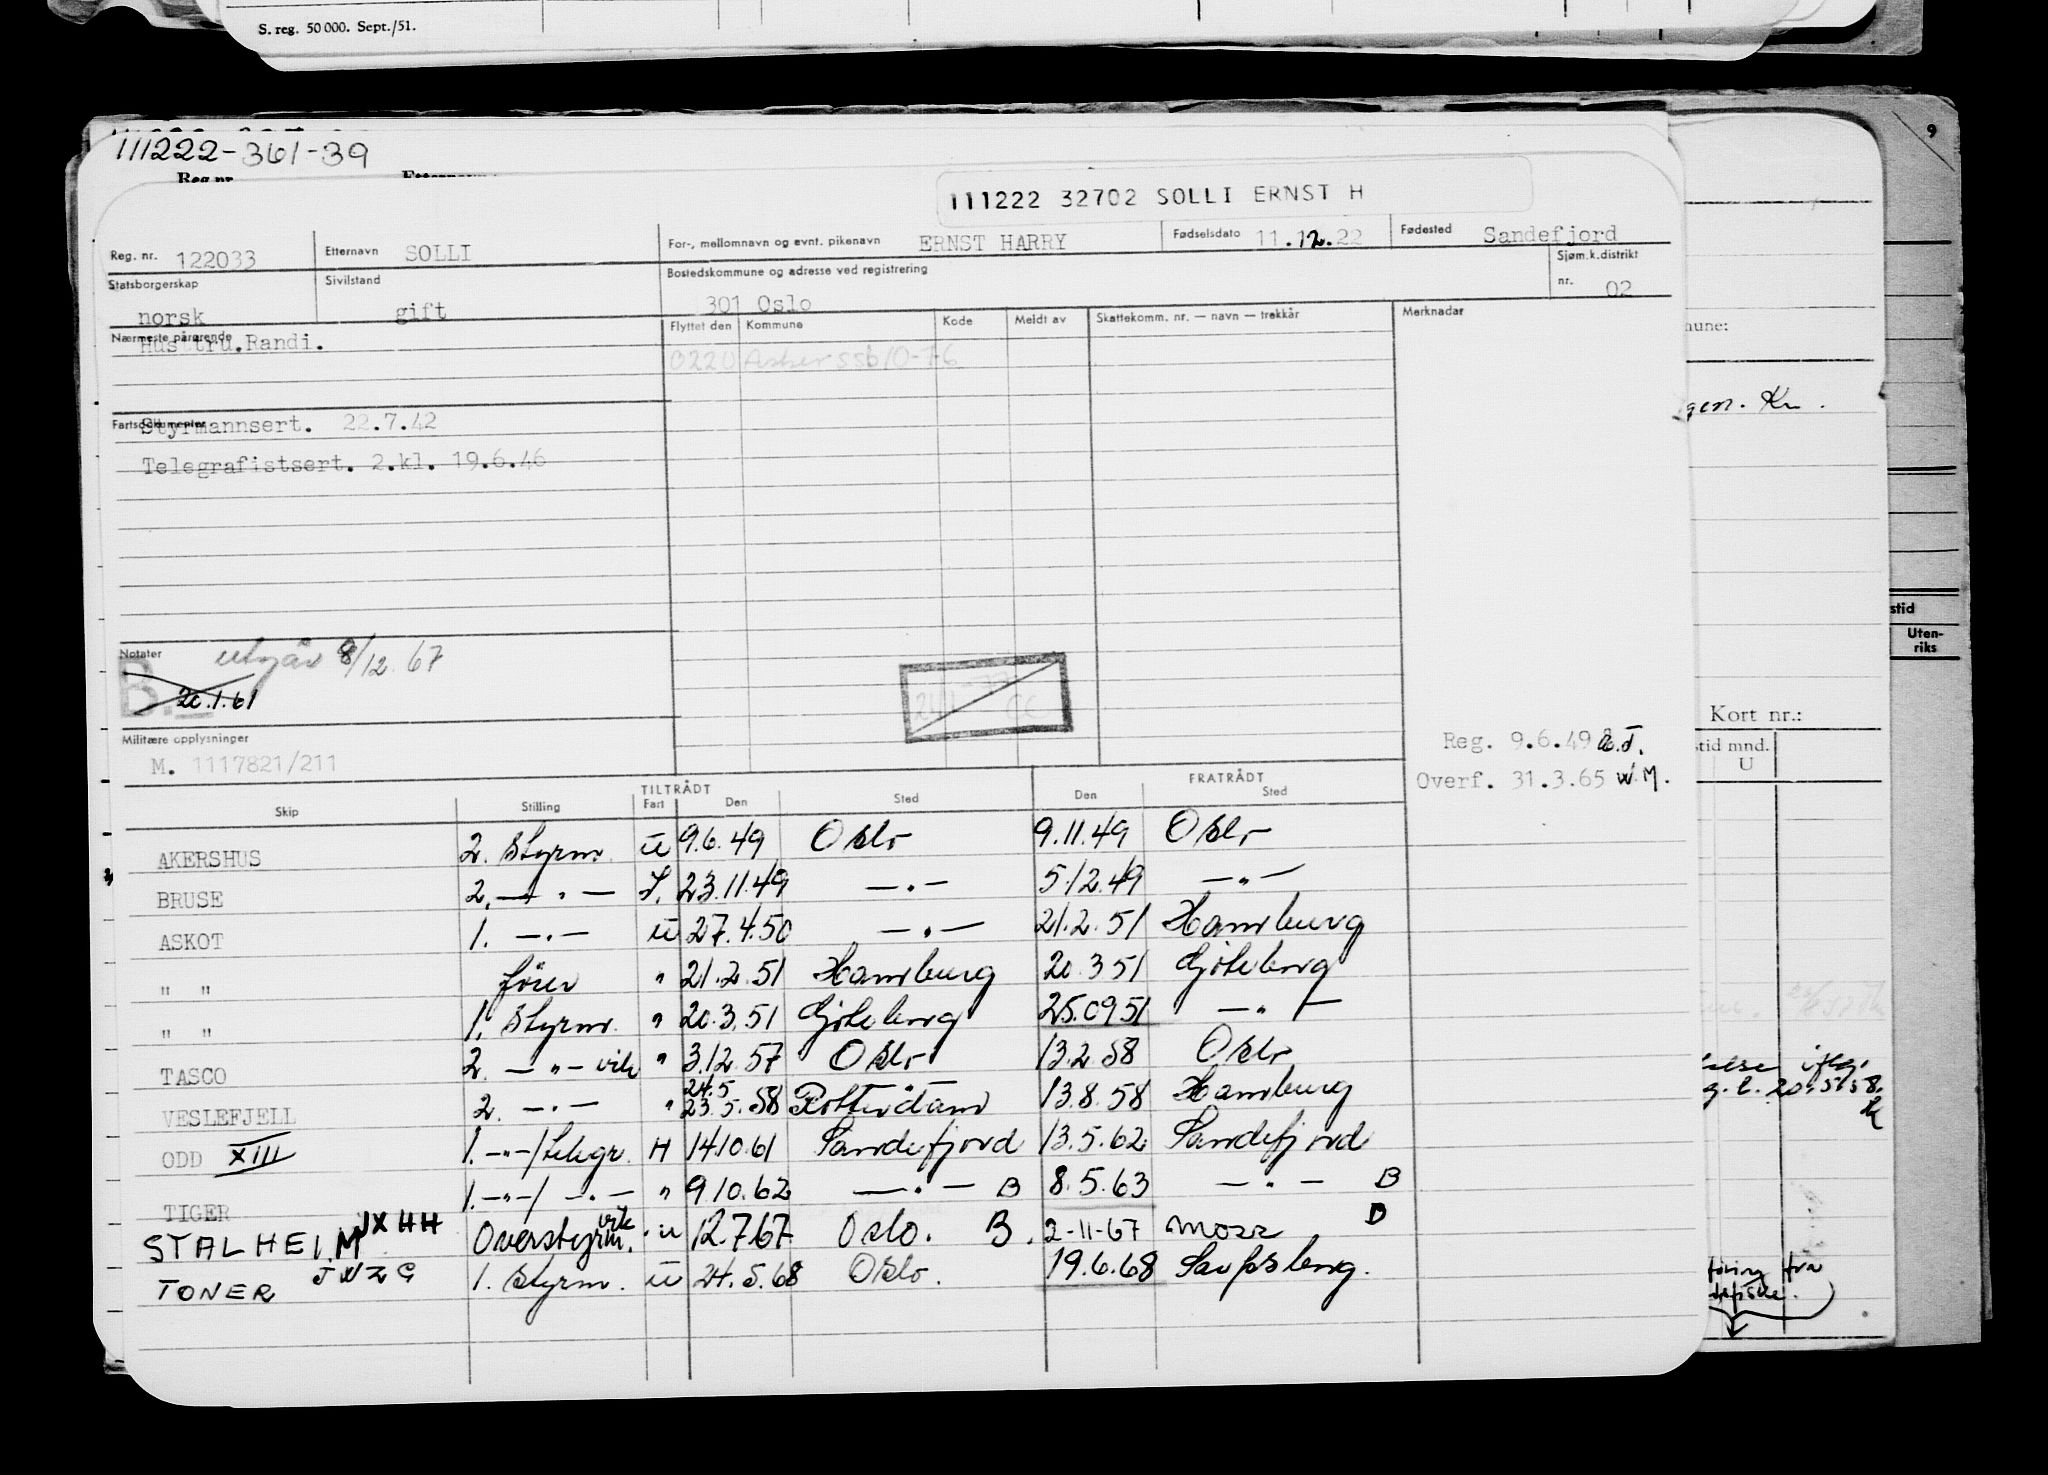 S. reg. 50 000. Sept./51.
9
111222-361-39
Reg.nr.
111222 32702 SOLLI ERNST H
Reg. nr. 122033 Etternavn SOLLI For-, mellomnavn og evnt. pikenavn ERNST HARRY Fødselsdato 11.12.22 Fødested Sandefjord
Statsborgerskap norsk Sivilstand gift Bostedskommune og adresse ved registrering 301 Oslo Sjøm.k.distrikt nr. 02
Nærmeste pårørende Hustru.Randi. Flyttet den Kommune Kode Meldt av Skattekomm. nr. — navn — trekkår Merknader
0220 Asker ssb 10-76
Fartsdokumenter
Styrmannsert. 22.7.42
Telegrafistsert. 2.kl. 19.6.46
Notater utgår 8/12.67
B. 20.1.61
Militære opplysninger
M. 1117821/211
Reg. 9.6.49
Overf. 31.3.65 W.M.
TILTRÅDT FRATRÅDT
Skip Stilling Fart Den Sted Den Sted
AKERSHUS 2. Styrm. u 9.6.49 Oslo 9.11.49 Oslo
BRUSE 2. — " — I. 23.11.49 — " — 5.12.49 — " —
ASKOT 1. — " — u 27.4.50 — " — 21.2.51 Hamburg
" " fører " 21.2.51 Hamburg 20.3 51 Göteborg
" " 1. Styrm. " 20.3.51 Göteborg 25.09 51 — " —
TASCO 2. — " — vik " 3.12.57 Oslo 13.2.58 Oslo
24.5
VESLEFJELL 2. — " — " 23.5.58 Rotterdam 13.8.58 Hamburg
ODD XIII 1. — " —/telegr. H 14.10.61 Sandefjord 13.5.62 Sandefjord
TIGER 1. — " —/ — " — " 9.10.62 — " — B 8.5.63 — " — B
STALHEIM JXHH Overstyrm. vik u 12.7.67 Oslo. B. 2-11-67 Moss D
TONER JWZG 1. Styrm. u 24.5.68 Oslo. 19.6.68 Sarpsborg.
mune:
gen. Kr.
stid
Uten-
riks
Kort nr.:
stid mnd.
U
20.5.58.
føring fra